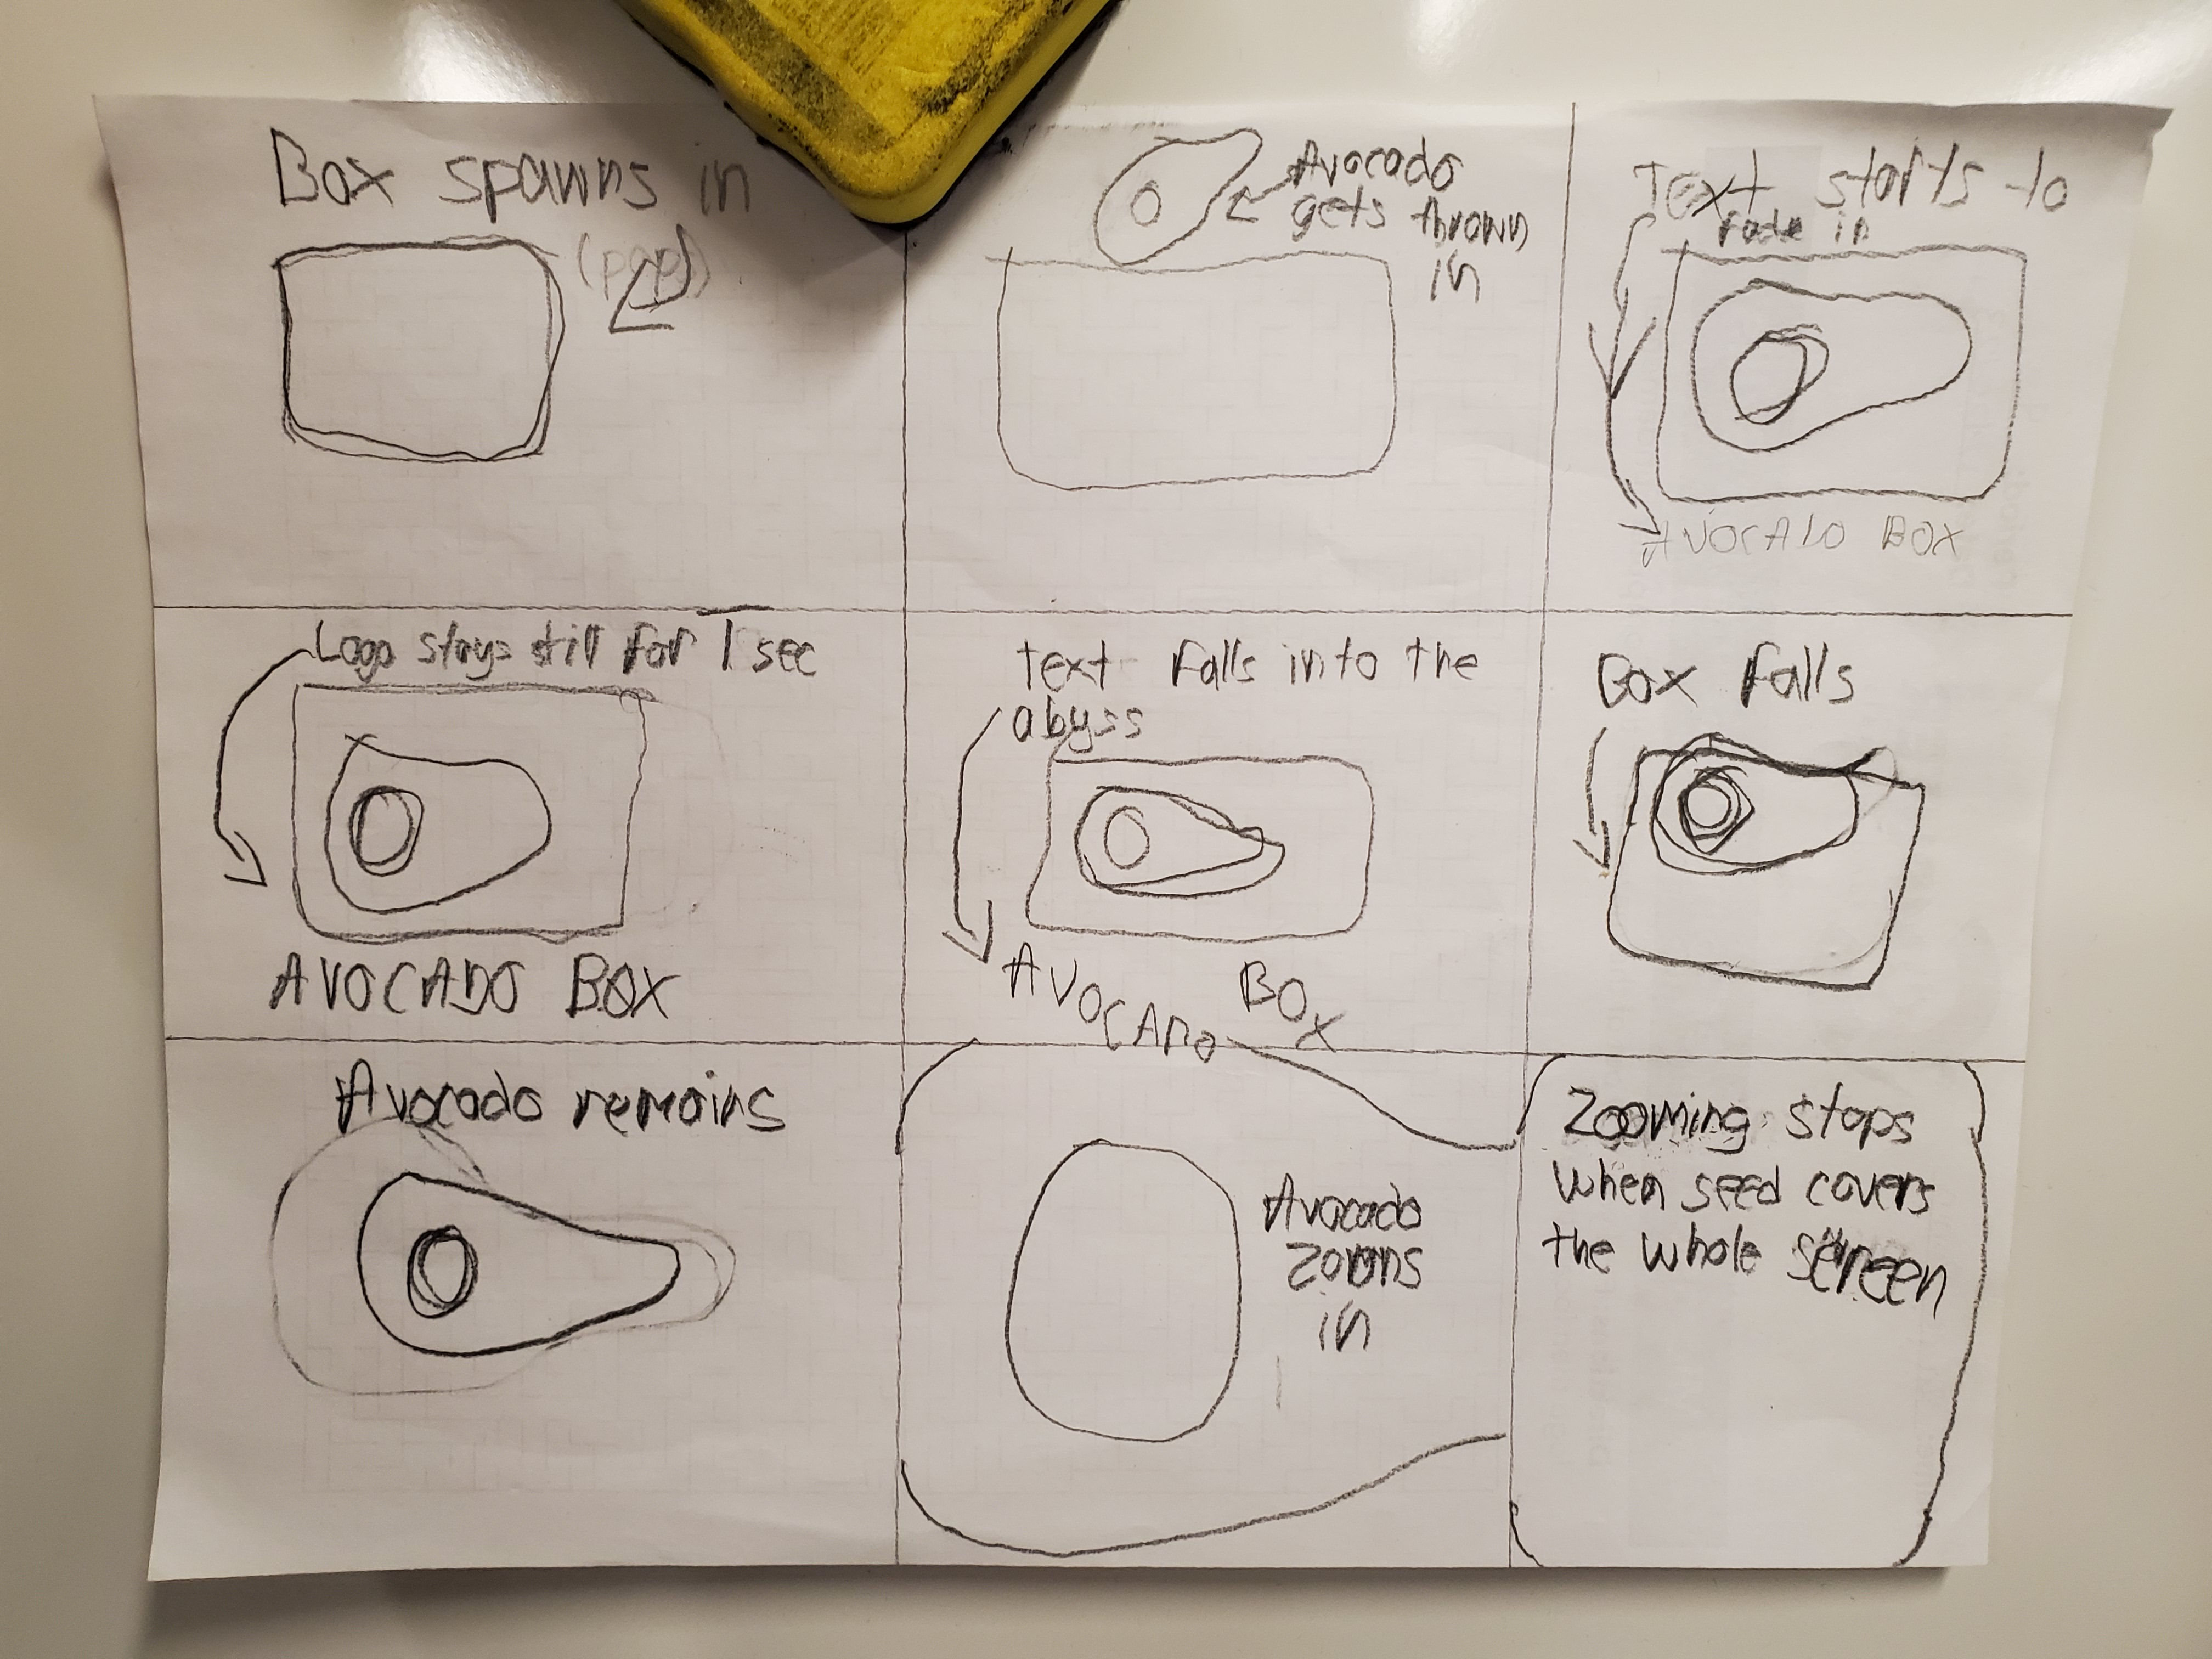 Box spawns in
(pop)
Avocado
gets thrown
in
Text starts to
fade in
AVOCADO BOX
Logo stays still for 1 sec
AVOCADO BOX
Text falls into the
abyss
AVOCADO BOX
Box falls
Avocado remains
Avocado
zooms
in
Zooming stops
when seed covers
the whole screen